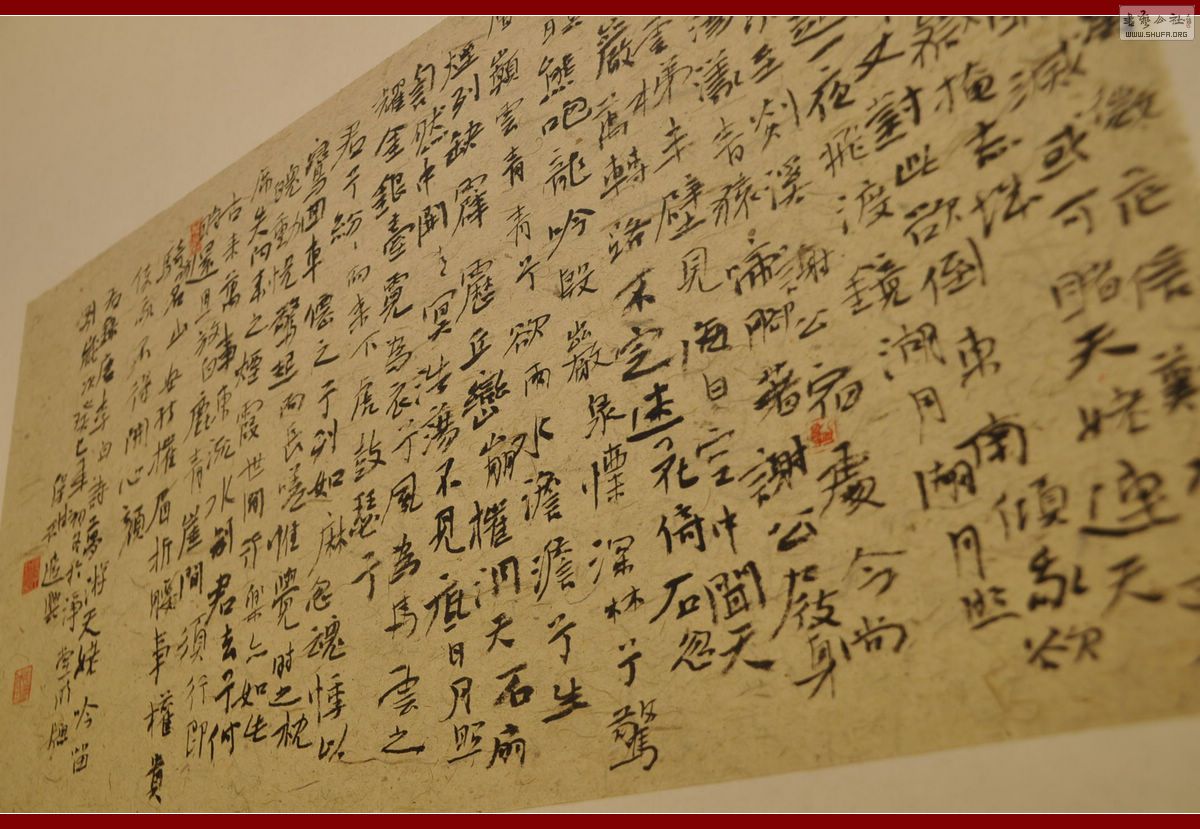 微茫信難
滅或可睹天姥連天
掩赤城
丈對此欲倒東南傾我欲
一夜飛渡鏡湖月湖月照
至剡溪謝公宿處今尚
蕩漾青猿啼腳著謝公屐身
雲梯半壁見海日空中聞天
巖萬轉路不定迷花倚石忽
暝熊咆龍吟殷巖泉慄深林兮驚
層巔雲青青兮欲雨水澹澹兮生
煙列缺霹靂丘巒崩摧洞天石扇
訇然中開青冥浩蕩不見底日月照
耀金銀臺霓為衣兮風為馬雲之
君兮紛紛而來下虎鼓瑟兮
鸞回車僊之兮列如麻忽魂悸以
魄動怳驚起而長嗟惟覺時之枕
席失向來之煙霞世間行樂亦如此
古來萬事東流水別君去兮何
時還且放白鹿青崖間須行即
騎訪名山安能摧眉折腰事權貴
使我不得開心顏
右錄唐李白詩夢游天姥吟留
別歲次癸巳年初冬於淨堂
WWW.SHUFA.ORG